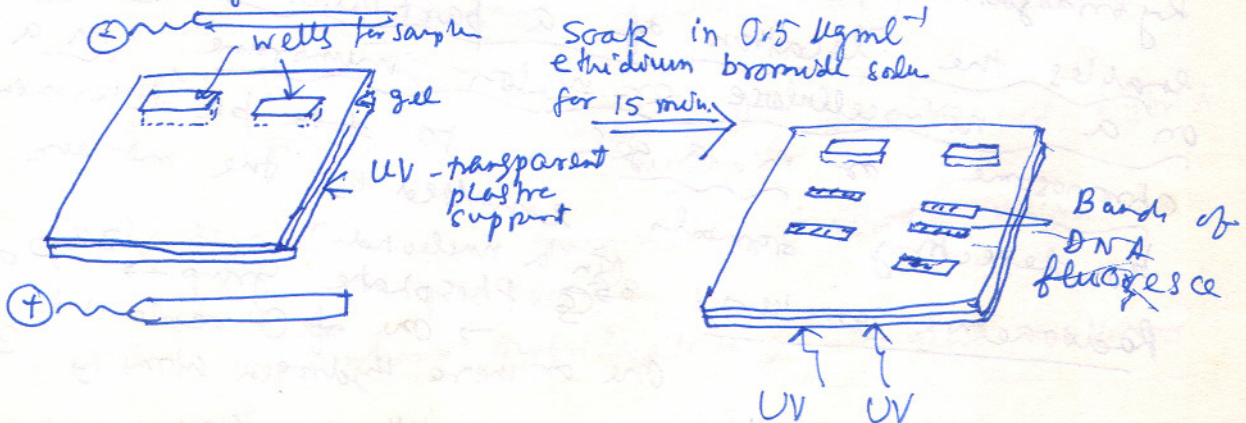 ⊖
wells for samples
gel
UV-transparent
plastic
support
⊕
Soak in 0.5 µgml⁻¹
ethidium bromide soln
for 15 min.
Bands of
DNA
fluoresce
UV UV